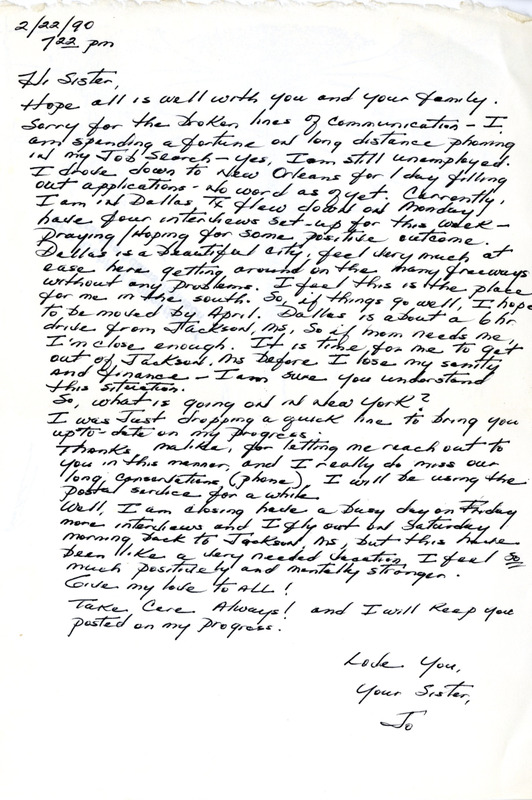 2/22/90
7:22 pm
Hi Sister,
Hope all is well with you and your family.
Sorry for the broken lines of communication - I
am spending a fortune on long distance phoning
in my Job Search - Yes, I am still unemployed.
I drove down to New Orleans for 1 day filling
out applications - no word as of yet. Currently,
I am in Dallas, Tx flew down on Monday
have four interviews set-up for this week -
Praying/Hoping for some positive outcome.
Dallas is a beautiful city, feel very much at
ease here getting around on the many freeways
without any problems. I feel this is the place
for me in the south. So, if things go well, I hope
to be moved by April. Dallas is about a 6 hr
drive from Jackson, Ms, so if mom needs me,
I'm close enough. It is time for me to get
out of Jackson, Ms before I lose my sanity
and finance - I am sure you understand
this situation.
So, what is going on in New York?
I was just dropping a quick line to bring you
up to-date on my progress.
Thanks, Malika, for letting me reach out to
you in this manner, and I really do miss our
long conversations (phone). I will be using the
postal service for a while
Well, I am closing have a busy day on Friday
more interviews and I fly out on Saturday
morning back to Jackson, Ms, but this have
been like a very needed vacation, I feel so
much positively and mentally stronger.
Give my love to ALL!
Take Care Always! and I will keep you
posted on my progress.
Love You,
Your Sister,
Jo